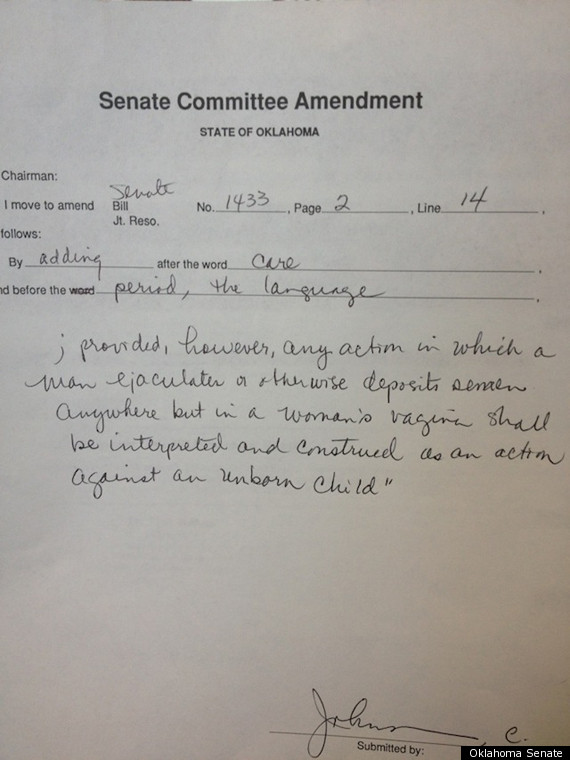 Senate Committee Amendment
STATE OF OKLAHOMA
Chairman:
Senate
I move to amend Bill No. 1433, Page 2, Line 14,
Jt. Reso.
follows:
By adding after the word care,
nd before the word period, the language.
; provided, however, any action in which a
man ejaculates or otherwise deposits semen
anywhere but in a woman's vagina shall
be interpreted and construed as an action
against an unborn child"
Johnson, C.
Submitted by:
Oklahoma Senate